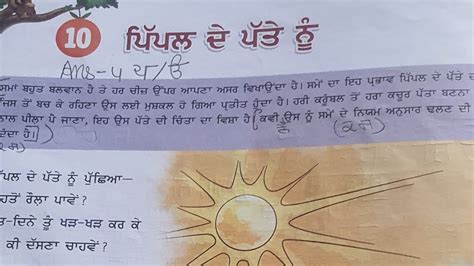 10 ਪਿੱਪਲ ਦੇ ਪੱਤੇ ਨੂੰ
Ans-4
ਸਮਾਂ ਬਹੁਤ ਬਲਵਾਨ ਹੈ ਤੇ ਹਰ ਚੀਜ਼ ਉੱਪਰ ਆਪਣਾ ਅਸਰ ਵਿਖਾਉਂਦਾ ਹੈ। ਸਮੇਂ ਦਾ ਇਹ ਪ੍ਰਭਾਵ ਪਿੱਪਲ ਦੇ ਪੱਤੇ
ਜਿਸ ਤੋਂ ਬਚ ਕੇ ਰਹਿਣਾ ਉਸ ਲਈ ਮੁਸ਼ਕਲ ਹੋ ਗਿਆ ਪ੍ਰਤੀਤ ਹੁੰਦਾ ਹੈ। ਹਰੀ ਕਰੂੰਬਲ ਤੋਂ ਹਰਾ ਕਚੂਰ ਪੱਤਾ ਬਣਨਾ
ਨਾਲ ਪੀਲਾ ਪੈ ਜਾਣਾ, ਇਹ ਉਸ ਪੱਤੇ ਦੀ ਚਿੰਤਾ ਦਾ ਵਿਸ਼ਾ ਹੈ। ਕਵੀ ਉਸ ਨੂੰ ਸਮੇਂ ਦੇ ਨਿਯਮ ਅਨੁਸਾਰ ਢਲਣ ਦੀ
ਦੇਂਦਾ ਹੈ।
ਪਲ ਦੇ ਪੱਤੇ ਨੂੰ ਪੁੱਛਿਆ—
ਹਤੋਂ ਰੌਲਾ ਪਾਵੇਂ ?
ਤ-ਦਿਨੇ ਤੂੰ ਖੜ-ਖੜ ਕਰ ਕੇ
ਕੀ ਦੱਸਣਾ ਚਾਹਵੇਂ ?